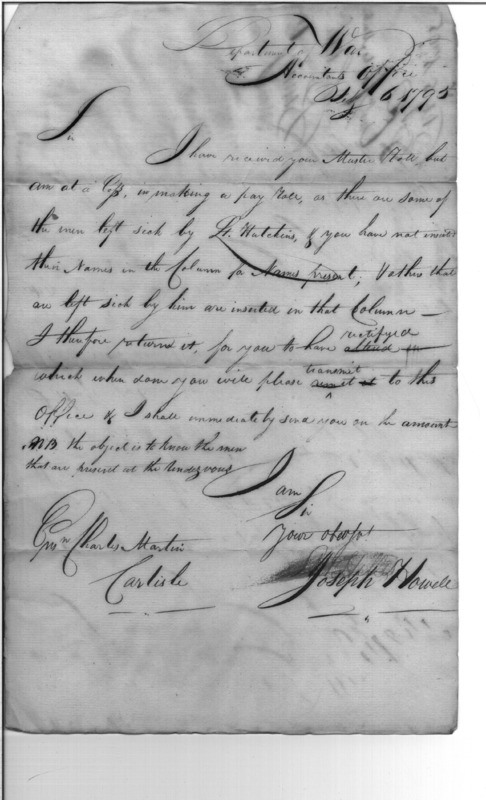 Department of War
Accountants Office
6 1795
Sir
I have received your Muster Roll but
am at a loss, in making a pay roll, as there are some of
the men left sick by Lt. Hutchins, & you have not inserted
their Names in the Column for Names present; & others that
are left sick by him are inserted in that Column —
I therefore return'd it, for you to have altered in rectifyed
which when done you will please remit it transmit to this
Office & I shall immediately send you on the amount
NB the object is to know the men
that are present at the rendezvous
I am
Sir
Your obdt
Joseph Howell
Charles Martin
Carlisle